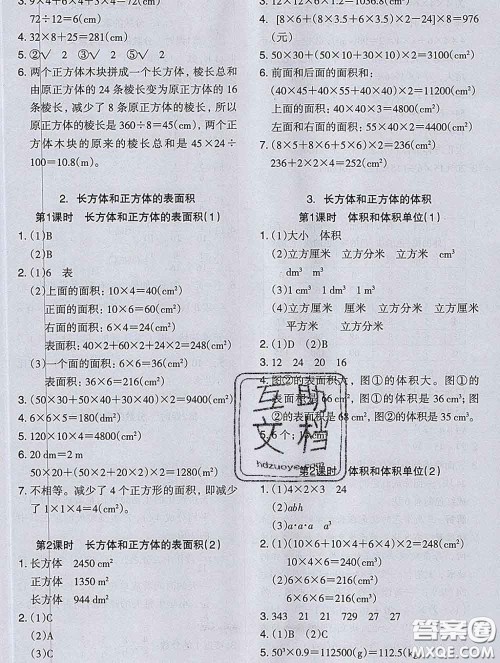 3. 9×4+6×4+3×4=72(cm)
72÷12=6(cm)
4. 32×8+25=281(cm)
5. ②√ √ ③√ √
6. 两个正方体木块拼成一个长方体，棱长总和
由原正方体的 24 条棱长变为原正方体的 16
条棱长，减少了 8 条原正方体的棱长，所以
原正方体的棱长是 360÷8=45(cm)，两个正
方体木块的原来的棱长总和是 45×24÷
100=10.8(m)。
2. 长方体和正方体的表面积
第1课时 长方体和正方体的表面积(1)
1. (1)B
(2)B
2. (1)6 表
(2)上面的面积：10×4=40(cm²)
正面的面积：10×6=60(cm²)
右面的面积：6×4=24(cm²)
表面积：40×2+60×2+24×2=248(cm²)
(3)一个面的面积：6×6=36(cm²)
表面积：36×6=216(cm²)
3. (50×30+50×40+30×40)×2=9400(cm²)
4. 6×6×5=180(dm²)
5. 120×10×4=4800(cm²)
6. 20dm=2 m
50×20+(50×2+20×2)×2=1280(m²)
7. 不相等。减少了 4 个正方形的面积，即减少
了1×1×4=4(cm²)。
第2课时 长方体和正方体的表面积(2)
1. 长方体 2450 cm²
正方体 1350 m²
长方体 944 dm²
2. (1)C
(2)A
(3)C
3. 12×6×2+10×6×2=
4. [8×6+(8×3.5+6×3.5)×2-24]×8=976
(元)
5. 50×30+(50×10+30×10)×2=3100(cm²)
6. 前面和后面的面积和：
(40×45+40×55+40×40)×2=11200(cm²)
上面的面积：40×40×3=4800(cm²)
左面和右面的面积：55×40×2=4400(cm²)
7. 6×6×6=216(cm²)
236+2×2×4=252(cm²)
3. 长方体和正方体的体积
第1课时 体积和体积单位(1)
1. (1)大小 体积
(2)立方厘米 立方分米 立方米 cm³
dm³ m³
(3)1
(4)立方厘米 立方厘米 立方分米
平方米 立方分米
2. (1)D (2)B
3. 12 24 20 16
4. 图②的表面积大，图①的体积大。图①的体
表面积是66 cm²，图①的体积是36 cm³；图
②的表面积是68 cm²，图②的体积是35 cm³。
5. 6个；
第2课时 体积和体积单位(2)
1. (1)4×2×3 24
(2)abh
(3)a·a·a a³
2. (1)(10×6+10×4+6×4)×2=248(cm²)
10×4×6=240(cm³)
(2)6×6×6=216(cm²)
6×6×6=216(cm³)
3. 343 21 729 27 64
4. (1)C (2)B (3)C
5. 50³×0.9=112500(g)=112.5(kg)
互助
文档
hdzuoye.com
答案圈
MXQE.COM